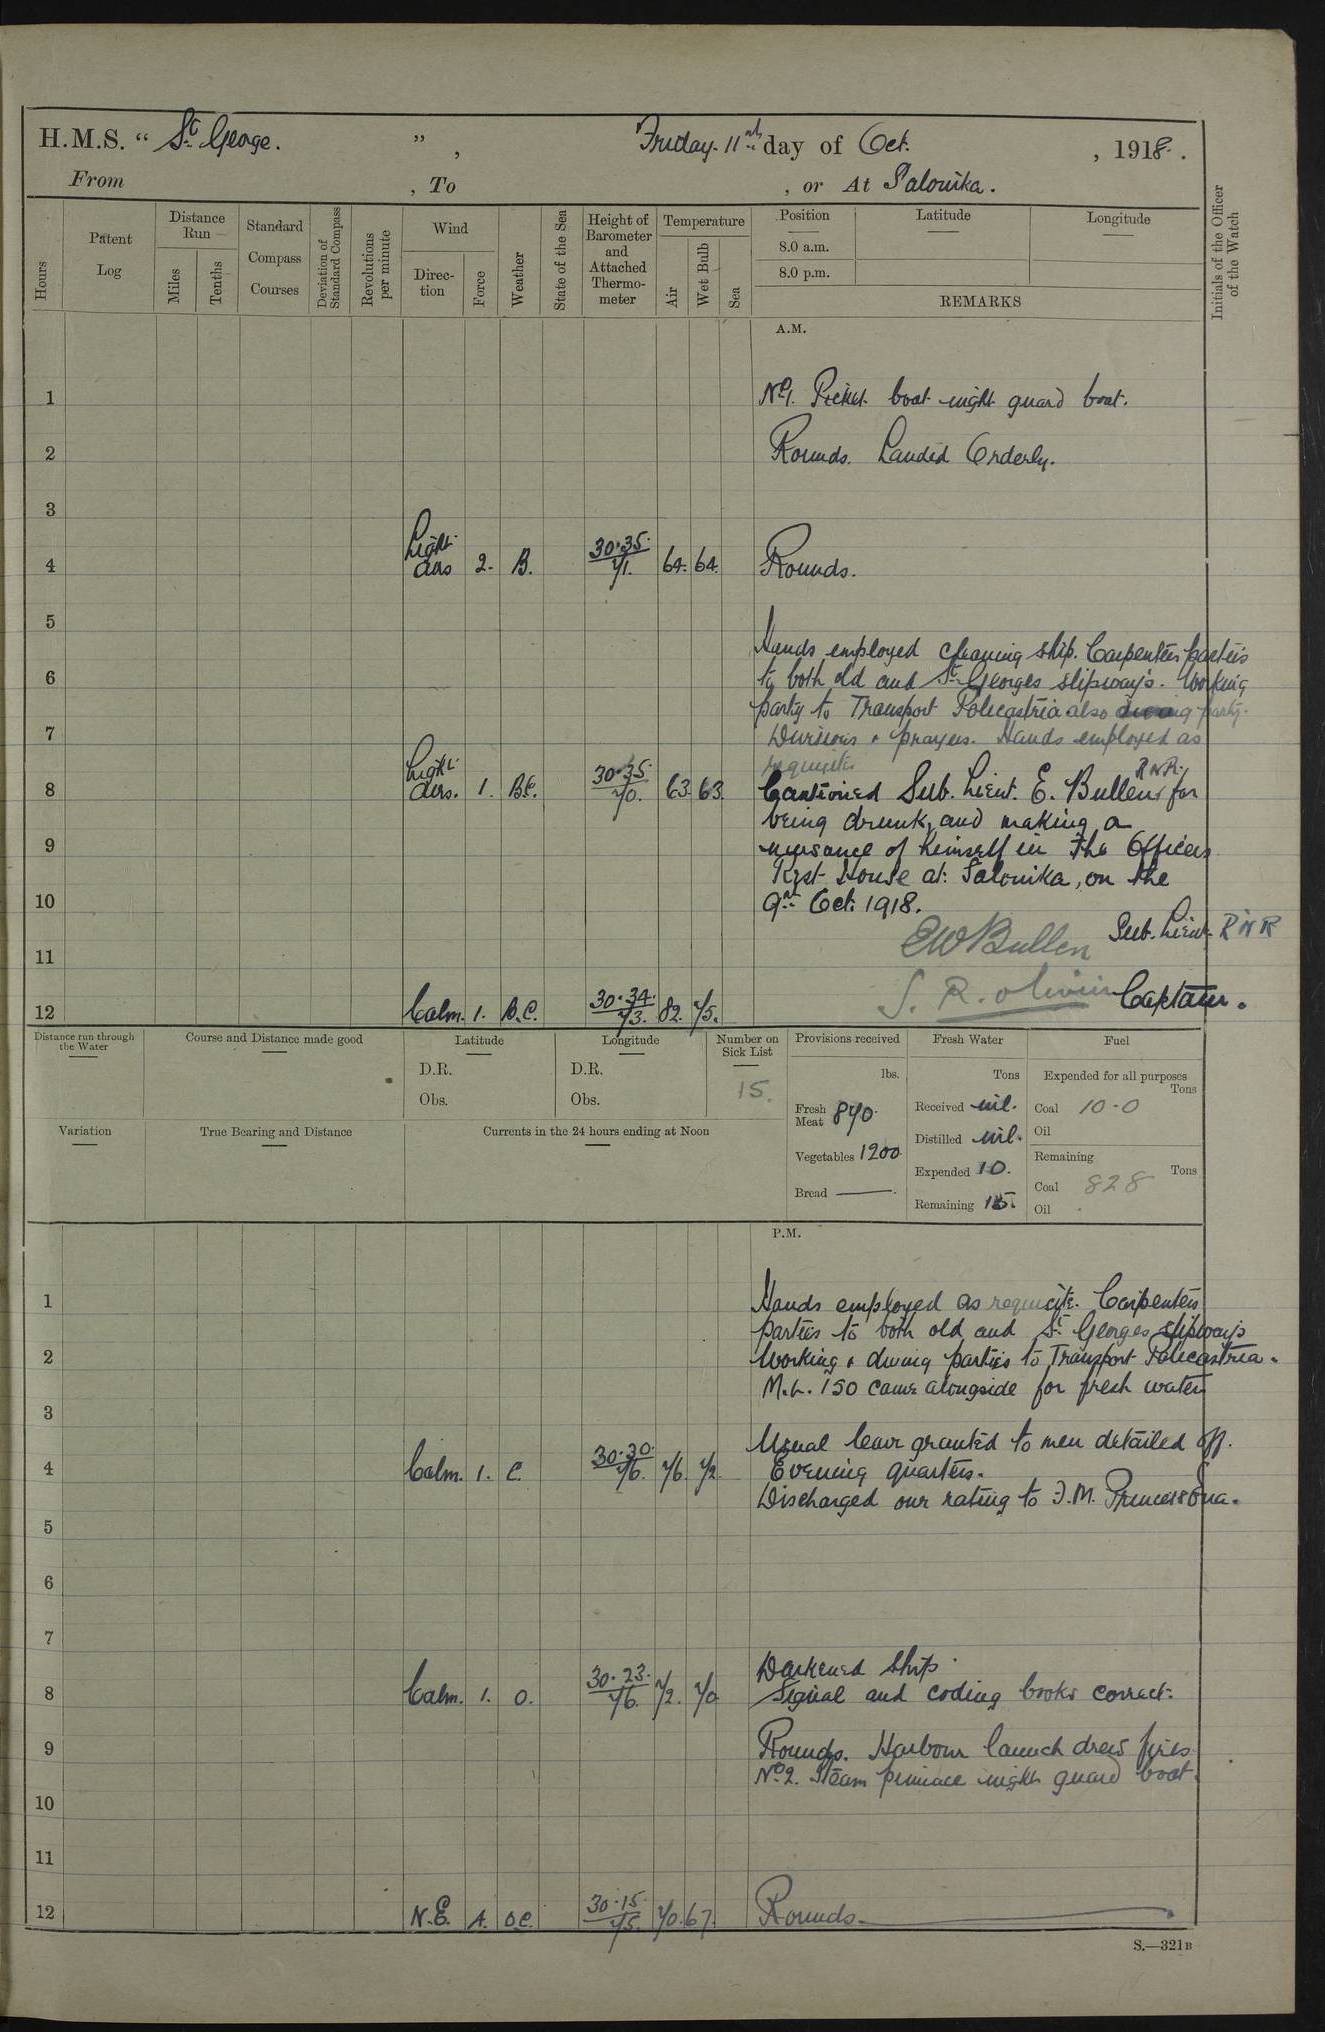 H.M.S. “ St George. ” , Friday 11th day of Oct. , 1918.
From , To , or At Salonika.
Hours
Patent Log
Distance Run
Miles
Tenths
Standard Compass Courses
Deviation of Standard Compass
Revolutions per minute
Wind
Direction
Force
Weather
State of the Sea
Height of Barometer and Attached Thermometer
Temperature
Air
Wet Bulb
Sea
Position
Latitude
Longitude
8.0 a.m.
8.0 p.m.
REMARKS
Initials of the Officer of the Watch
A.M.
1 No 1. Picket boat night guard boat.
2 Rounds. Landed Orderly.
3
4 Light airs 2. B. 30.35. 71. 64. 64. Rounds.
5
Hands employed cleaning ship. Carpenters parties
6 to both old and St Georges slipways. Working
party to Transport Policastria also diving party.
7 Divisions & prayers. Hands employed as
requisite
8 Light airs. 1. B.C. 30.35. 70. 63. 63. Cautioned Sub. Lieut. E. Bullen RNR. for
being drunk, and making a
9 nuisance of himself in the Officers
Rest House at Salonika, on the
10 9th Oct. 1918.
EW Bullen Sub. Lieut. RNR
11
S. R. Olivier Captain.
12 Calm. 1. B.C. 30.34. 73. 82. 75.
Distance run through the Water
Course and Distance made good
Latitude
D.R.
Obs.
Longitude
D.R.
Obs.
Number on Sick List
15.
Provisions received
lbs.
Fresh Meat 870.
Vegetables 1200
Bread —
Fresh Water
Tons
Received nil.
Distilled nil.
Expended 10.
Remaining
Fuel
Expended for all purposes
Tons
Coal 10-0
Oil
Remaining
Tons
Coal 828
Oil
Variation
True Bearing and Distance
Currents in the 24 hours ending at Noon
P.M.
1 Hands employed as requisite. Carpenters
parties to both old and St Georges slipways
2 Working & diving parties to Transport Policastria.
M.L. 150 came alongside for fresh water
3
Usual leave granted to men detailed off.
4 Calm. 1. C. 30.30. 76. 76. 72. Evening quarters.
Discharged one rating to F.M. Princess Ena.
5
6
7
Darkened ship.
8 Calm. 1. O. 30.23. 76. 72. 70 Signal and coding books correct.
9 Rounds. Harbour launch drew fires
No 2. Steam pinnace night guard boat.
10
11
12 N.E. 4. O.C. 30.15 75. 70. 67. Rounds.
S.—321B